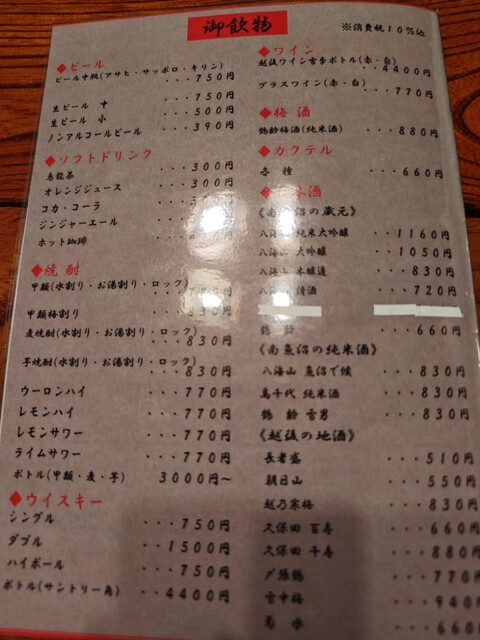 御飲物
※消費税10%込
◆ビール
ビール中瓶(アサヒ・サッポロ・キリン)
・・・750円
生ビール 中 ・・・750円
生ビール 小 ・・・500円
ノンアルコールビール ・・・390円
◆ソフトドリンク
烏龍茶 ・・・300円
オレンジジュース ・・・300円
コカ・コーラ
ジンジャーエール
ホット珈琲
◆焼酎
甲類(水割り・お湯割り・ロック)
甲類梅割り ・・・830円
麦焼酎(水割り・お湯割り・ロック)
・・・830円
芋焼酎(水割り・お湯割り・ロック)
・・・830円
ウーロンハイ ・・・770円
レモンハイ ・・・770円
レモンサワー ・・・770円
ライムサワー ・・・770円
ボトル(甲類・麦・芋) 3000円～
◆ウイスキー
シングル ・・・750円
ダブル ・・1500円
ハイボール ・・・750円
ボトル(サントリー角) ・・4400円
◆ワイン
越後ワイン雪季ボトル(赤・白)
・・4400円
グラスワイン(赤・白) ・・・770円
◆梅酒
鶴齢梅酒(純米酒) ・・・880円
◆カクテル
各種 ・・・660円
本酒
《南魚沼の蔵元》
八海山 純米大吟醸 ・・1160円
八海山 大吟醸 ・・1050円
八海山 本醸造 ・・・830円
清酒 ・・・720円
鶴 齢 ・・・660円
《南魚沼の純米酒》
八海山 魚沼で候 ・・・830円
高千代 純米酒 ・・・830円
鶴 齢 雪男 ・・・830円
《越後の地酒》
長者盛 ・・・510円
朝日山 ・・・550円
越乃寒梅 ・・・830円
久保田 百寿 ・・・660円
久保田 千寿 ・・・880円
〆張鶴 ・・・770円
雪中梅 ・・・940円
菊 水 ・・・660円